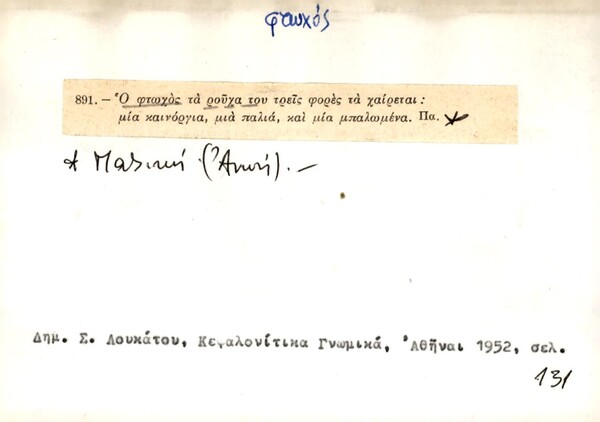 φτωχός
891. – Ὁ φτωχὸς τὰ ροῦχα του τρεῖς φορὲς τὰ χαίρεται :
μία καινόργια, μιὰ παλιά, καὶ μία μπαλωμένα. Πα.
Δημ. Σ. Λουκάτου, Κεφαλονίτικα Γνωμικά, Ἀθῆναι 1952, σελ.
131